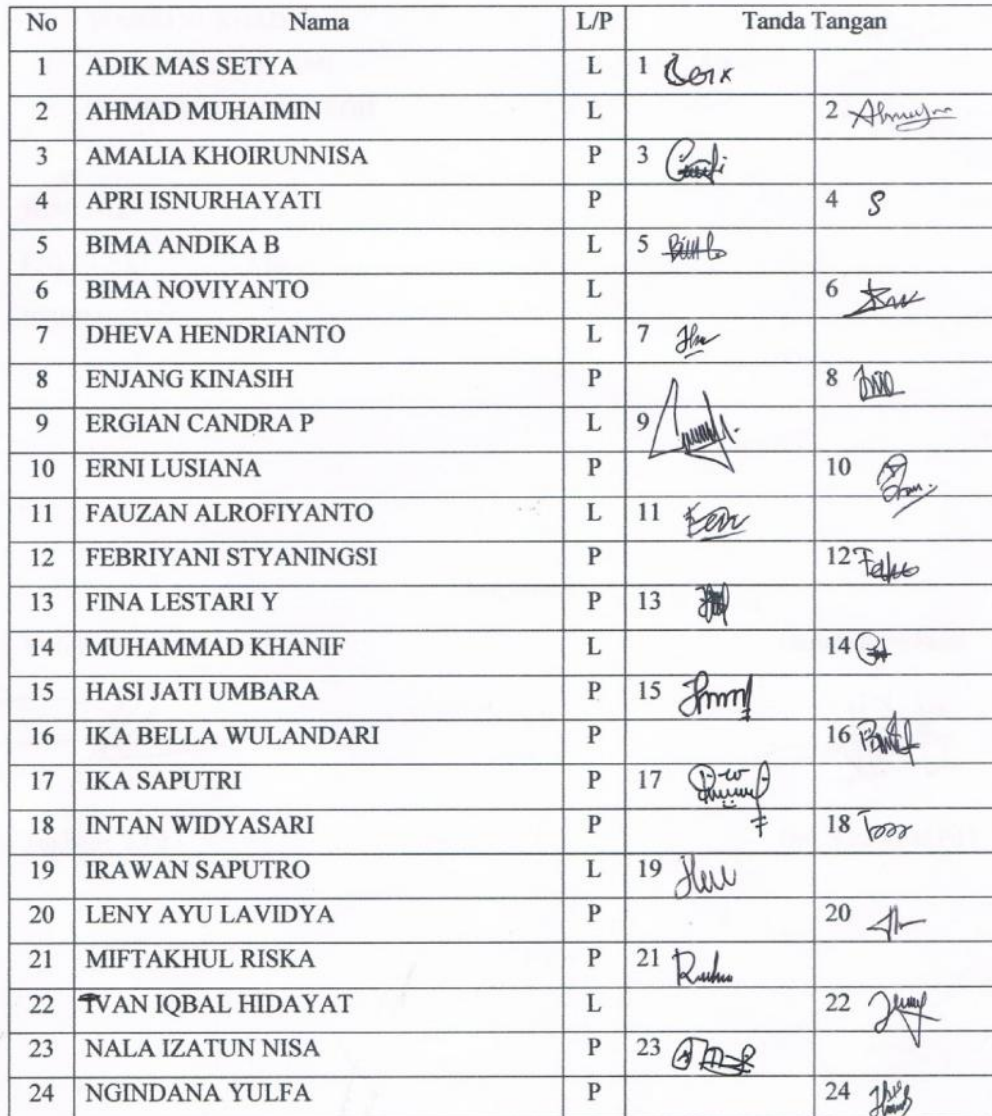 No Nama L/P Tanda Tangan
1 ADIK MAS SETYA L 1
2 AHMAD MUHAIMIN L 2
3 AMALIA KHOIRUNNISA P 3
4 APRI ISNURHAYATI P 4
5 BIMA ANDIKA B L 5
6 BIMA NOVIYANTO L 6
7 DHEVA HENDRIANTO L 7
8 ENJANG KINASIH P 8
9 ERGIAN CANDRA P L 9
10 ERNI LUSIANA P 10
11 FAUZAN ALROFIYANTO L 11
12 FEBRIYANI STYANINGSI P 12
13 FINA LESTARI Y P 13
14 MUHAMMAD KHANIF L 14
15 HASI JATI UMBARA P 15
16 IKA BELLA WULANDARI P 16
17 IKA SAPUTRI P 17
18 INTAN WIDYASARI P 18
19 IRAWAN SAPUTRO L 19
20 LENY AYU LAVIDYA P 20
21 MIFTAKHUL RISKA P 21
22 IVAN IQBAL HIDAYAT L 22
23 NALA IZATUN NISA P 23
24 NGINDANA YULFA P 24